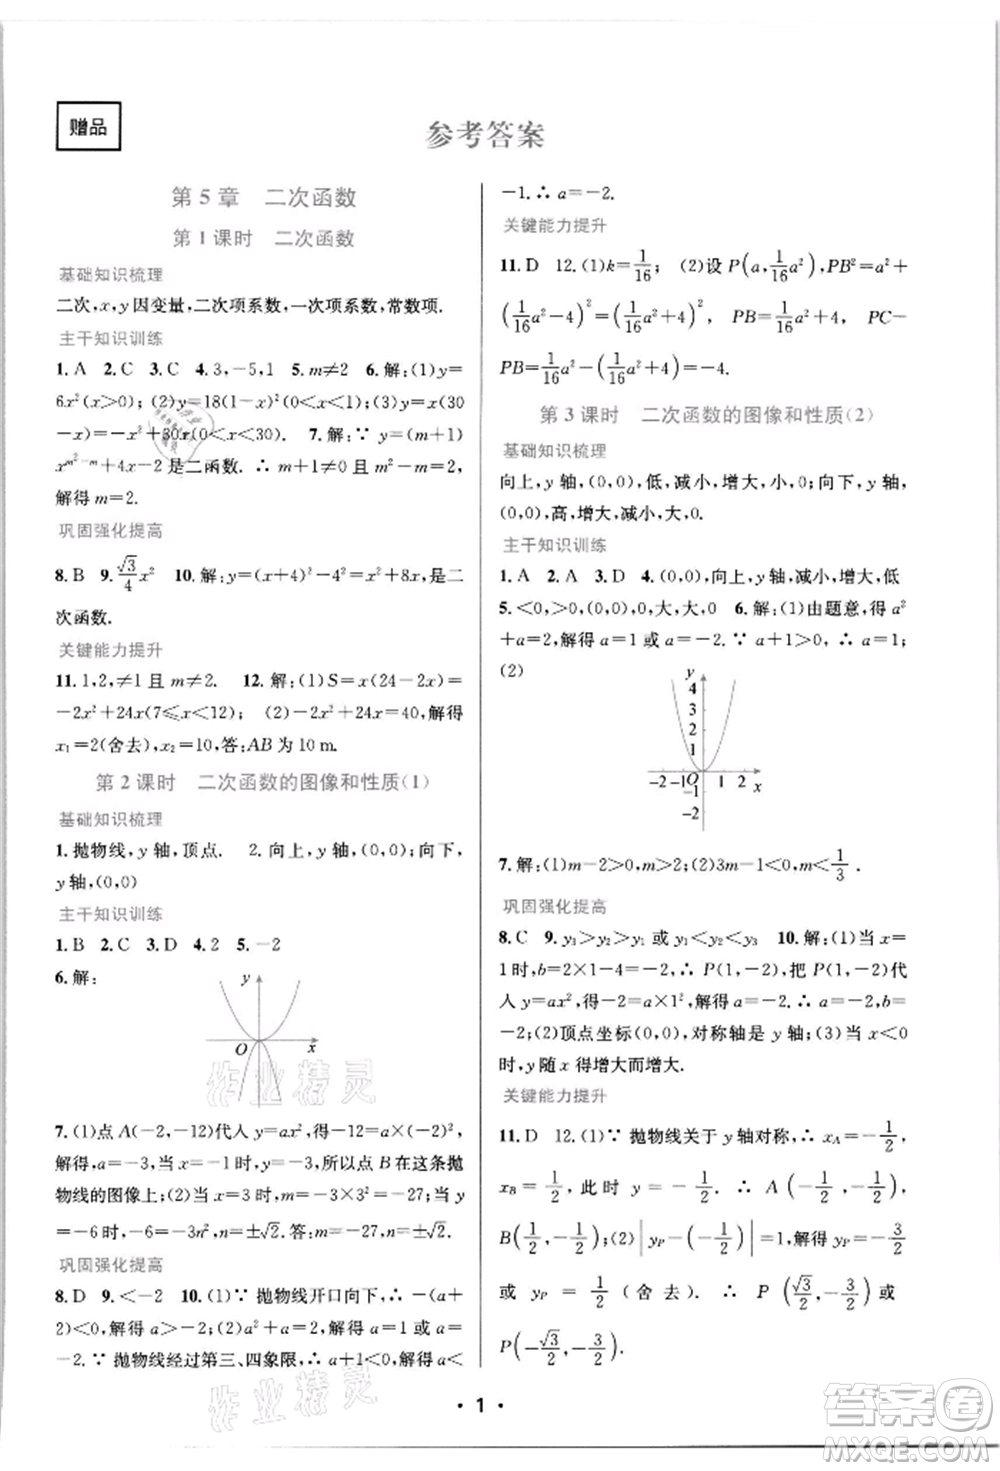 赠品
参考答案
第5章 二次函数
第1课时 二次函数
基础知识梳理
二次,x,y因变量,二次项系数,一次项系数,常数项.
主干知识训练
1. A 2. C 3. C 4. 3,-5,1 5. m≠2 6. 解:(1)y=
6x²(x>0);(2)y=18(1-x)²(0<x<1);(3)y=x(30
-x)=-x²+30x(x<30). 7. 解:∵函数y=(m+1)
x^{m²-m}是二函数.∴m+1≠0且m²-m=2,
解得m=2.
巩固强化提高
8. B 9. √3/4 x² 10. 解:y=(x+4)²-4²=x²+8x,是二
次函数.
关键能力提升
11. 1,2,≠1且m≠2. 12. 解:(1)S=x(24-2x)=
-2x²+24x(7⩽x<12); (2)-2x²+24x=40,解得
x₁=2(舍去),x₂=10,答:AB为10 m.
第2课时 二次函数的图像和性质(1)
基础知识梳理
1. 抛物线,y轴,顶点. 2. 向上,y轴,(0,0);向下,
y轴,(0,0)
主干知识训练
1. B 2. C 3. D 4. 2 5. -2
6. 解:
y
O x
7. (1)点A(-2,-12)代人y=ax²,得-12=a(-2)²,
解得,a=-3,当x=-1时,y=-3,所以点B在这条抛
物线的图像上;(2)当x=3时,m=-3×3²=-27;当y
=-6时,-6=-3n²,n=±√2.答:m=-27,n=±√2.
巩固强化提高
8. D 9. <-2 10. (1)∵抛物线开口向下,∴-(a+
2)<0,解得a>-2;(2)∵抛物线开口向上,∴a<
-2.∵抛物线经过第三、四象限,∴a+1<0,解得a<
-1.∴a=-2.
关键能力提升
11. D 12. (1)k=1/16; (2)设P(a,1/16 a²),PB²=a²+
(1/16 a²-4)²=(1/16 a²+4)², PB=1/16 a²+4, PC-
PB=1/16 a²-(1/16 a²+4)=-4.
第3课时 二次函数的图像和性质(2)
基础知识梳理
向上,y轴,(0,0),低,减小,增大,小,0;向下,y轴,
(0,0),高,增大,减小,大,0.
主干知识训练
1. A 2. A 3. D 4. (0,0),向上,y轴,减小,增大,低
5. <0,>0,减小,增大 6. 解:(1)由题意,得a²
+a=2,解得a=1或a=-2.∵a+1>0,∴a=1;
(2)
y
4
3
2
1
-2 -1 O 1 2 x
-1
-2
7. 解:(1)m-2>0,m>2;(2)3m-1<0,m<1/3.
巩固强化提高
8. C 9. y₃>y₂>y₁或y₁<y₂<y₃ 10. 解:(1)当x=
1时,b=2×1-4=-2,∴P(1,-2),把P(1,-2)代
人y=ax²,得-2=a×1²,解得a=-2,∴a=-2,b=
-2;(2)顶点坐标(0,0),对称轴是y轴;(3)当x<0
时,y随x得增大而增大.
关键能力提升
11. D 12. (1)∵抛物线关于y轴对称,∴x_A=-1/2,
x_B=1/2,此时y=-1/2.∴A(-1/2,-1/2),
B(1/2,-1/2);(2)|y_P-1/2|=1,解得y_P=-3/2
或y_P=1/2(舍去).∴P(√3/2,-3/2)或
P(-√3/2,-3/2).
·1·
作业精灵
作业精灵
答案圈
MXQE.COM